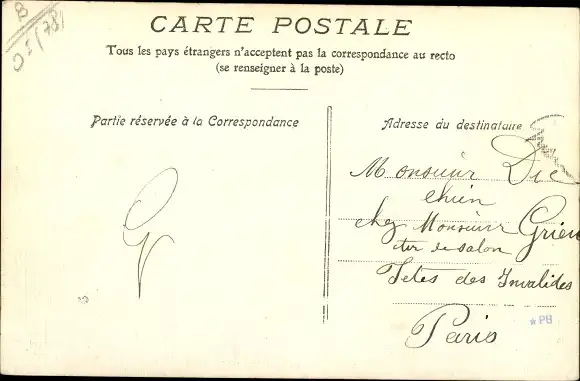 B
OI (78)
CARTE POSTALE
Tous les pays étrangers n'acceptent pas la correspondance au recto
(se renseigner à la poste)
Partie réservée à la Correspondance
Adresse du destinataire
Monsieur Dic
chien
chez Monsieur Grien
de salon
Fetes des Invalides
Paris
*PB